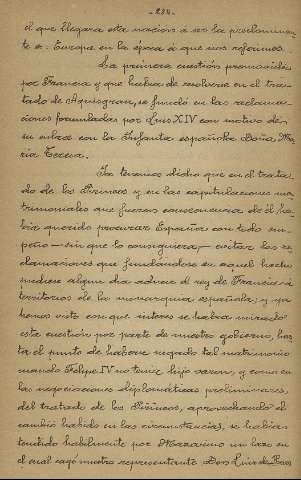 -224-
el que llegara esta nación á ser la preponderante
á Europa en la época á que nos referimos.
La primera cuestión promovida
por Francia y que había de resolverse en el tra-
tado de Aquisgran, se fundó en las reclama-
ciones formuladas por Luis XIV con motivo de
su enlace con la Infanta española Doña Ma-
ria Teresa.
Ya tenemos dicho que en el trata-
do de los Pirineos y en las capitulaciones ma-
trimoniales que fueron consecuencia de él, ha-
bía querido procurar España con todo em-
peño—sin que lo consiguiera—evitar las re-
clamaciones que fundándose en aquel hecho
pudiera algun dia aducir el rey de Francia á
territorios de la monarquia española; y ya
hemos visto con que interes se había mirado
esta cuestión por parte de nuestro gobierno, has-
ta el punto de haberse negado tal matrimonio
cuando Felipe IV no tenía hijo varon, y como en
las negociaciones diplomáticas preliminares,
del tratado de los Pirineos, aprovechando el
cambio habido en las circunstancias, se había
tendido habilmente por Mazarino un lazo en
el cual cayó nuestro representante Don Luis de Haro